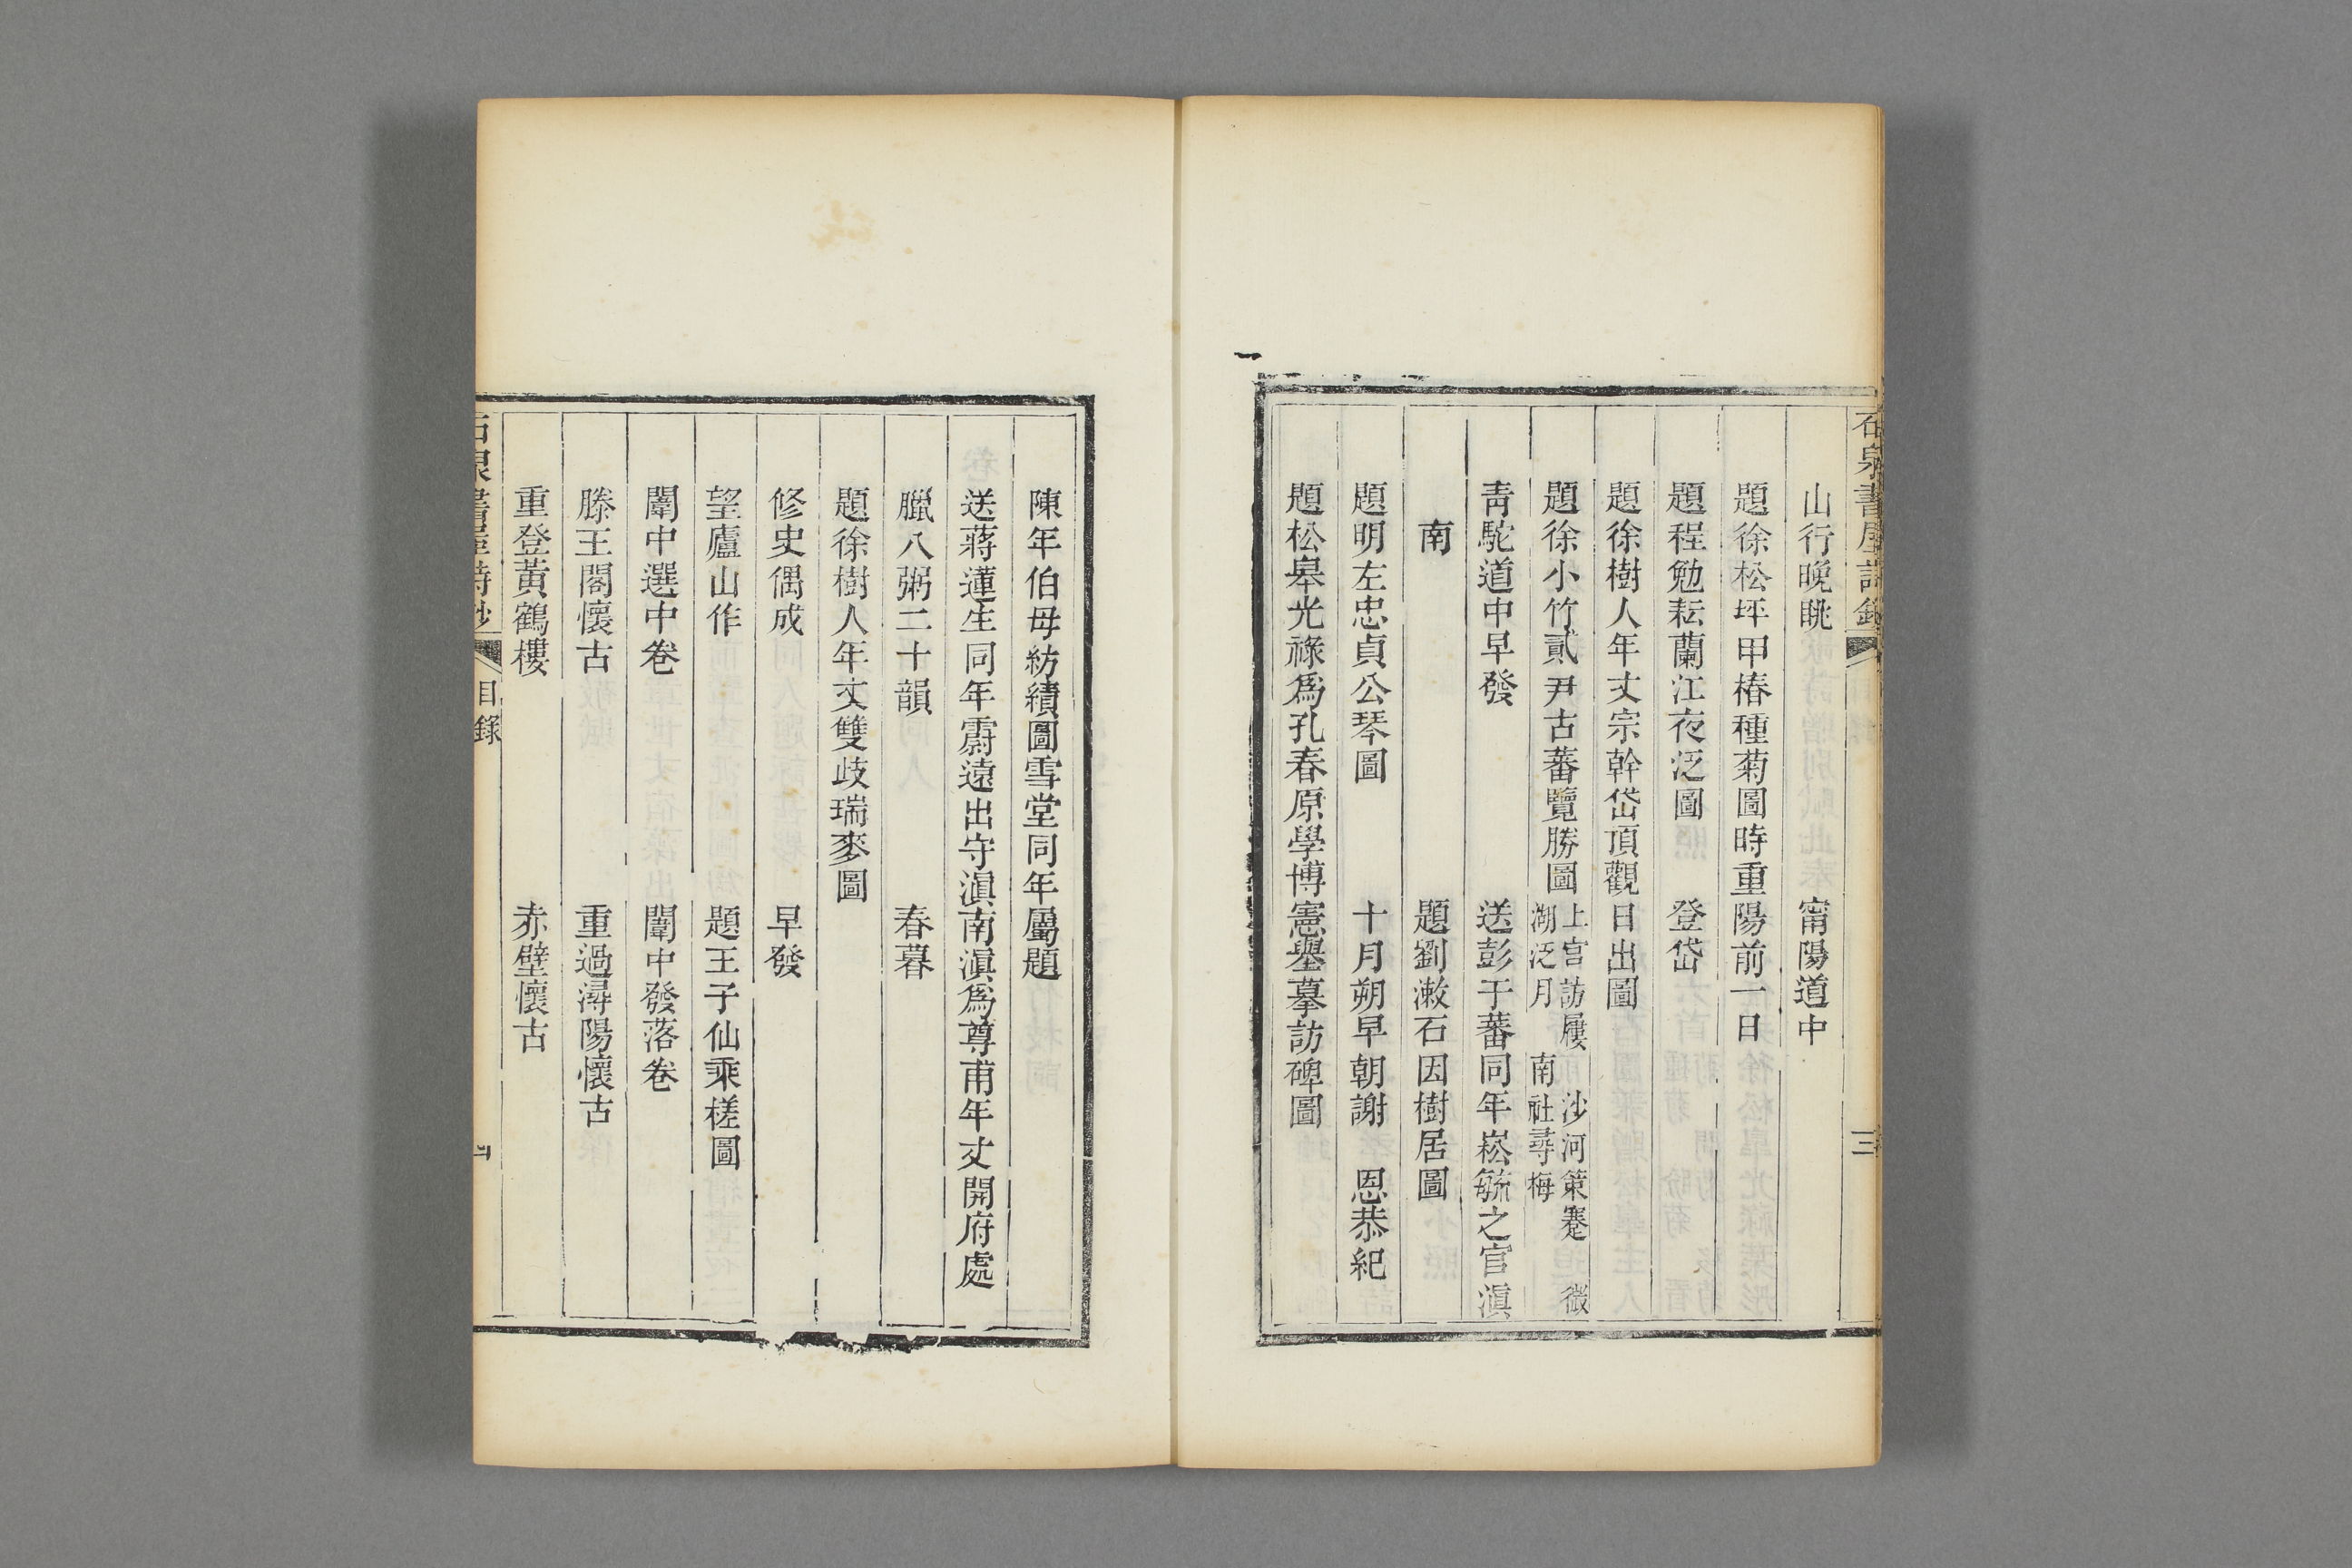 山行晚眺　甯陽道中
題徐松坪甲椿種菊圖時重陽前一日
題程勉耘蘭江夜泛圖　登岱
題徐樹人年丈宗幹岱頂觀日出圖
題徐小竹貳尹古蕃覽勝圖　上宮訪屧　沙河策蹇　微湖泛月　南社尋梅
青駝道中早發　送彭于蕃同年崧毓之官滇
南　題劉漱石因樹居圖
題明左忠貞公琴圖　十月朔早朝謝　恩恭紀
題松皋光祿爲孔春原學博憲舉摹訪碑圖
石泉書屋詩鈔　三
陳年伯母紡績圖雪堂同年屬題
送蔣蓮生同年霨遠出守滇南滇爲尊甫年丈開府處
臘八粥二十韻　春暮
題徐樹人年丈雙歧瑞麥圖
修史偶成　早發
望廬山作　題王子仙乘槎圖
闈中選中卷　闈中發落卷
滕王閣懷古　重過潯陽懷古
重登黃鶴樓　赤壁懷古
石泉書屋詩鈔　目錄　四